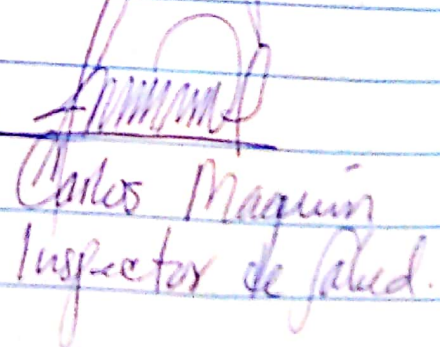 Carlos Maquin
Inspector de Salud.